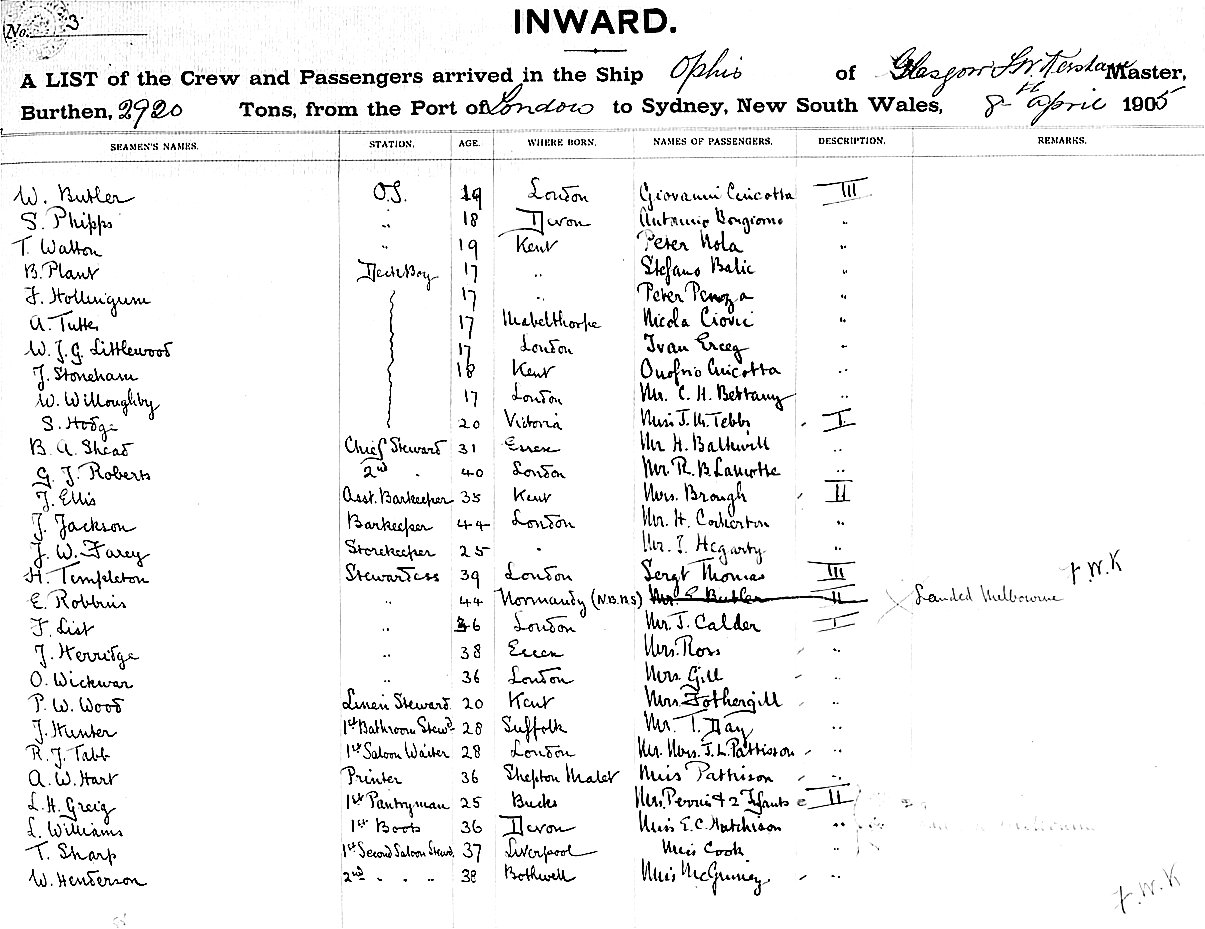 No. 3
INWARD.
A LIST of the Crew and Passengers arrived in the Ship Ophir of Glasgow Master,
Burthen, 2920 Tons, from the Port of London to Sydney, New South Wales, 8th April 1905
SEAMEN'S NAMES. STATION. AGE. WHERE BORN. NAMES OF PASSENGERS. DESCRIPTION. REMARKS.
W. Butler O.S. 19 London Giovanni Cincotta III
S. Phipps " 18 Devon Antonino Bongiorno "
T. Walton " 19 Kent Peter Nola "
B. Plant Deck Boy 17 " Stefano Balic "
F. Hollingum 17 " Peter "
A. Tutte 17 Mabelthorpe Nicola Ciovic "
W. J. G. Littlewood 17 London Ivan Erceg "
J. Stoneham 18 Kent Onofrio Cincotta "
W. Willoughby 17 London Mr. C. H. Bettany "
S. Hodge 20 Victoria Miss J. M. Tebbs I
B. A. Shead Chief Steward 31 Essex Mr H. Balkwill "
G. J. Roberts 2nd " 40 London Mr. R. B. Lamotte "
J. Ellis Asst. Barkeeper 35 Kent Mrs. Brough II
J. Jackson Barkeeper 44 London Mr. H. "
J. W. Farey Storekeeper 25 " Mr. T. Hegarty "
H. Templeton Stewardess 39 London Sergt Thomas III F.W.K
E. Robbins 44 Normandy (N.B.B.S) Mr. E Butler II Landed Melbourne
F. List " 36 London Mr. J. Calder I
J. Herridge " 38 Essex Mrs. Ross "
O. Wickwar " 36 London Mrs. Gill "
P. W. Wood Linen Steward 20 Kent Mrs Fothergill "
J. Hunter 1st Bathroom Stewd 28 Suffolk Mr. T. Day "
R. J. Tabb 1st Saloon Waiter 28 London Mr. Mrs. J. L. Pattison "
A. W. Hart Printer 36 Shepton Malet Miss Pattison "
L. H. Greig 1st Pantryman 25 Bucks Mrs. Perrin & 2 Infants II
L. Williams 1st Boots 36 Devon Miss E. C. Hutchison "
T. Sharp 1st Second Saloon Stewd. 37 Liverpool Miss Cook "
W. Henderson 2nd " " " 38 Bothwell Miss "
F.W.K